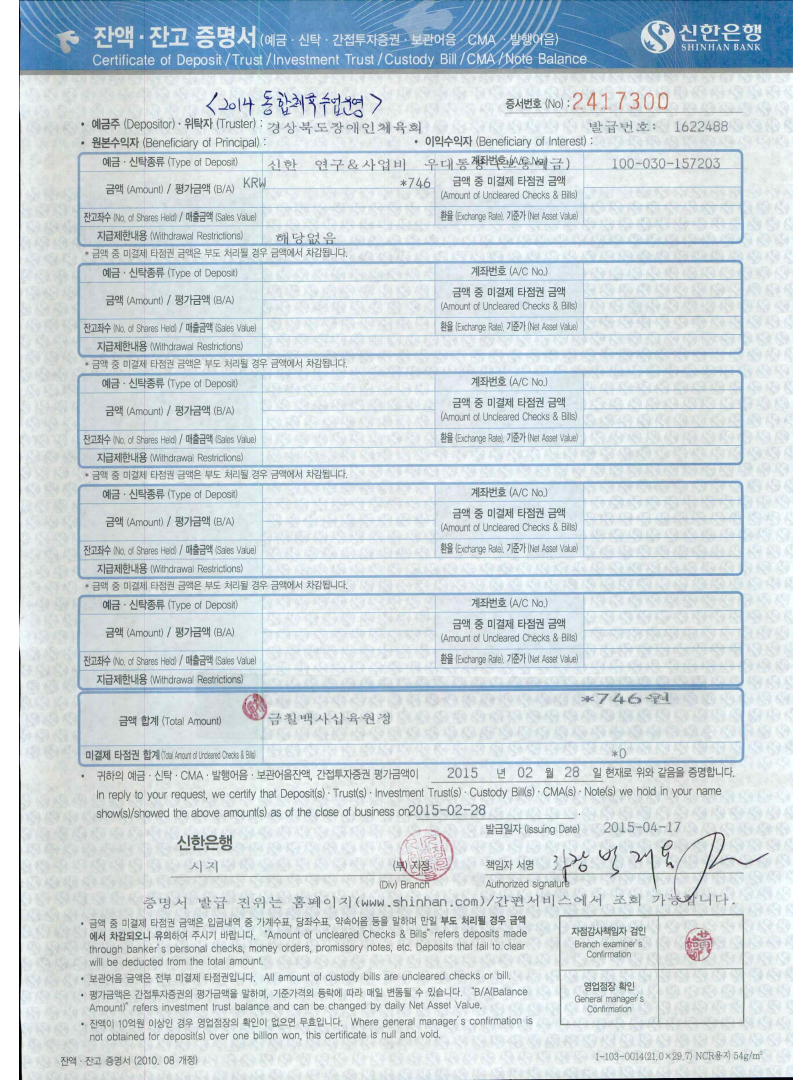 잔액 · 잔고 증명서 (예금 · 신탁 · 간접투자증권 · 보관어음 · CMA · 발행어음)
Certificate of Deposit / Trust / Investment Trust / Custody Bill / CMA / Note Balance
신한은행
SHINHAN BANK
<2014 통합체육수업운영>
증서번호 (No) : 2417300
• 예금주 (Depositor) · 위탁자 (Truster) : 경상북도장애인체육회 발급번호: 1622488
• 원본수익자 (Beneficiary of Principal) : • 이익수익자 (Beneficiary of Interest) :
예금 · 신탁종류 (Type of Deposit) 신한 연구&사업비 우대통장(보통예금) 계좌번호 (A/C No.) 100-030-157203
금액 (Amount) / 평가금액 (B/A) KRW *746 금액 중 미결제 타점권 금액
(Amount of Uncleared Checks & Bills)
잔고좌수 (No. of Shares Held) / 매출금액 (Sales Value) 환율 (Exchange Rate), 기준가 (Net Asset Value)
지급제한내용 (Withdrawal Restrictions) 해당없음
* 금액 중 미결제 타점권 금액은 부도 처리될 경우 금액에서 차감됩니다.
예금 · 신탁종류 (Type of Deposit) 계좌번호 (A/C No.)
금액 (Amount) / 평가금액 (B/A) 금액 중 미결제 타점권 금액
(Amount of Uncleared Checks & Bills)
잔고좌수 (No. of Shares Held) / 매출금액 (Sales Value) 환율 (Exchange Rate), 기준가 (Net Asset Value)
지급제한내용 (Withdrawal Restrictions)
* 금액 중 미결제 타점권 금액은 부도 처리될 경우 금액에서 차감됩니다.
예금 · 신탁종류 (Type of Deposit) 계좌번호 (A/C No.)
금액 (Amount) / 평가금액 (B/A) 금액 중 미결제 타점권 금액
(Amount of Uncleared Checks & Bills)
잔고좌수 (No. of Shares Held) / 매출금액 (Sales Value) 환율 (Exchange Rate), 기준가 (Net Asset Value)
지급제한내용 (Withdrawal Restrictions)
* 금액 중 미결제 타점권 금액은 부도 처리될 경우 금액에서 차감됩니다.
예금 · 신탁종류 (Type of Deposit) 계좌번호 (A/C No.)
금액 (Amount) / 평가금액 (B/A) 금액 중 미결제 타점권 금액
(Amount of Uncleared Checks & Bills)
잔고좌수 (No. of Shares Held) / 매출금액 (Sales Value) 환율 (Exchange Rate), 기준가 (Net Asset Value)
지급제한내용 (Withdrawal Restrictions)
* 금액 중 미결제 타점권 금액은 부도 처리될 경우 금액에서 차감됩니다.
예금 · 신탁종류 (Type of Deposit) 계좌번호 (A/C No.)
금액 (Amount) / 평가금액 (B/A) 금액 중 미결제 타점권 금액
(Amount of Uncleared Checks & Bills)
잔고좌수 (No. of Shares Held) / 매출금액 (Sales Value) 환율 (Exchange Rate), 기준가 (Net Asset Value)
지급제한내용 (Withdrawal Restrictions)
*746원
금액 합계 (Total Amount) 금칠백사십육원정
미결제 타점권 합계 (Total Amount of Uncleared Checks & Bills) *0
• 귀하의 예금 · 신탁 · CMA · 발행어음 · 보관어음잔액, 간접투자증권 평가금액이 2015 년 02 월 28 일 현재로 위와 같음을 증명합니다.
In reply to your request, we certify that Deposit(s) · Trust(s) · Investment Trust(s) · Custody Bill(s) · CMA(s) · Note(s) we hold in your name
show(s)/showed the above amount(s) as of the close of business on 2015-02-28 .
발급일자 (Issuing Date) 2015-04-17
신한은행
시지 (부) 지점 책임자 서명
(Div) Branch Authorized signature
증명서 발급 진위는 홈페이지(www.shinhan.com)/간편서비스에서 조회 가능합니다.
• 금액 중 미결제 타점권 금액은 입금내역 중 가계수표, 당좌수표, 약속어음 등을 말하며 만일 부도 처리될 경우 금액
에서 차감되오니 유의하여 주시기 바랍니다. "Amount of uncleared Checks & Bills" refers deposits made
through banker's personal checks, money orders, promissory notes, etc. Deposits that fail to clear
will be deducted from the total amount.
• 보관어음 금액은 전부 미결제 타점권입니다. All amount of custody bills are uncleared checks or bill.
• 평가금액은 간접투자증권의 평가금액을 말하며, 기준가격의 등락에 따라 매일 변동될 수 있습니다. "B/A(Balance
Amount)" refers investment trust balance and can be changed by daily Net Asset Value.
• 잔액이 10억원 이상인 경우 영업점장의 확인이 없으면 무효입니다. Where general manager's confirmation is
not obtained for deposit(s) over one billion won, this certificate is null and void.
자점감사책임자 검인
Branch examiner's
Confirmation
영업점장 확인
General manager's
Confirmation
잔액 · 잔고 증명서 (2010. 08 개정)
1-103-0014(21.0×29.7) NCR용지 54g/m²